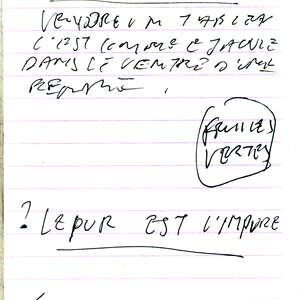 VENDRE UN TABLEAU
C'EST COMME EJACULE
DANS LE VENTRE D'UNE
FEUILLES
VERTES
? LE PUR EST L'IMPURE